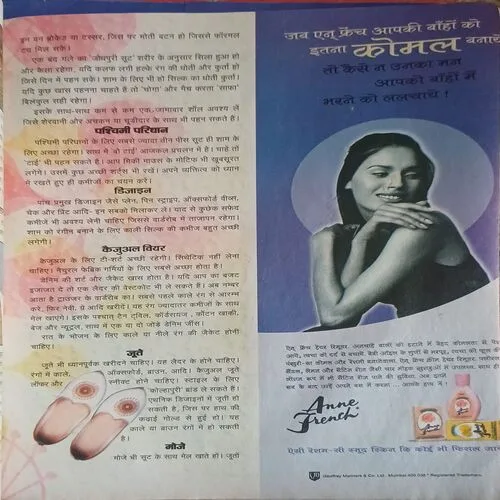 इन वन ब्रोकेड या टस्सर, जिस पर मोती बटन हो जिससे कॉरमल
टच मिल सके।
एक बंद गले का 'जोधपुरी सूट' शरीर के अनुसार सिला हुआ हो
और फैला रहेगा, यदि कल्फ लगी हल्के रंग की धोती और कुर्ता हो
जिसे दिन में पहन सके। शाम के लिए भी हो सिल्क का धोती कुर्ता।
यदि कुछ खास पहनना चाहते हैं तो 'चोगा' और मैच करता 'साफा'
बिलकुल सही रहेगा।
इसके साथ-साथ कम से कम एक-जामावार शॉल अवश्य लें
जिसे शेरवानी और अचकन या चूड़ीदार के साथ भी पहन सकते हैं।
पश्चिमी परिधान
पश्चिमी परिधानों के लिए सबसे ज्यादा तीन पीस सूट ही शाम के
लिए अच्छा रहेगा। साथ में 'बो टाई' आजकल प्रचलन में है। चाहें तो
'टाई' भी पहन सकते हैं। आप मिकी माउस के मोटिफ भी खूबसूरत
लगेंगे। उसमें कुछ अच्छी शर्टस भी रखें। अपने व्यक्तित्व को ध्यान
में रखते हुए ही कमीजों का चयन करे।
डिजाइन
पांच प्रमुख डिजाइन जैसे प्लेन, पिन स्ट्राइप, ऑक्सफोर्ड वीव्स,
चेक और प्रिंट आदि- इन सबको मिलाकर लें। याद से कुछेक सफेद
कमीजें भी अवश्य लेनी चाहिए जिससे वार्डरोब में ताजापन रहेगा।
शाम को रंगीन बनाने के लिए काली सिल्क की कमीज बहुत अच्छी
लगेगी।
कैजुअल वियर
कैजुअल के लिए टी-शर्ट अच्छी रहेगी। सिंथेटिक नहीं लेना
चाहिए। नैचुरल फेब्रिक गर्मियों के लिए सबसे अच्छा होता है।
डेनिम की शर्ट और जैकेट खास होता है। यदि आप का बजट
इजाजत दे तो एक लैदर की वेस्टकोट भी ले सकते हैं। अब नम्बर
आता है ट्राउजर के वार्डरोब का। सबसे पहले काले रंग से आरम्भ
करे, फिर नेवी, ग्रे आदि खरीदे। यह रंग ज्यादातर कमीजों के साथ
मेल खाएंगे। इसके पश्चात् टैन ट्विल, कॉरडराय, कॉटन खाकी,
बेज और न्यूट्रल, साथ में एक या दो जोड़े डेनिम जींस।
रात के भोजन के लिए काले या नीले रंग की जैकेट होनी
चाहिए।
जूते
जूते भी ध्यानपूर्वक खरीदने चाहिए। यह लैदर के होने चाहिए।
रंगों में काले, ऑक्सफोर्ड, ब्राउन, आदि। कैजुअल जूते
लॉफर और स्नीकर्ट होने चाहिए। स्टाइल के लिए
कोल्हापुरी ब्रांड ले सकते हैं।
एथनिक डिजाइनों में जूती हो
सकती है, जिस पर हाथ की
कढ़ाई गोल्ड से हुई हो। यह
काले या बाउन रंगों में हो सकती
है।
मोजे
मोजे भी सूट के साथ मेल खाते हों। जूतों
जब एन् फ्रेंच आपकी बाँहों को
इतना कोमल बनाये
तो कैसे न उनका मन
आपकी बाँहों में
भरने को ललचाये!
Anne
French
ऐसी रेशम-सी स्मूद स्किन कि कोई भी फिसल जाए
Geoffrey Manners & Co. Ltd. Mumbai 400 038 * Registered Trademark.